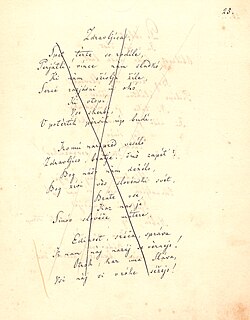 23.
Zdravljica.
Spet terte so rodile,
Perjatli vince nam sladkó,
Ki nam oživlja žile,
Serce razjasni in okó
Ki utopi
Vse skerbi,
V potertih persih up budi.
Komú narpred veselo
Zdravljico, bratje čmò zapét'?
Bog našo nam deželo,
Bog živi vès slovénski svet,
Brate vse,
Kar nas je
Sinov slovéče mátere.
Edinost, sréča, sprava
K nam naj nazaj se vernejo!
Otrók kar ima Sláva,
Vsi naj si v rôke séžejo!